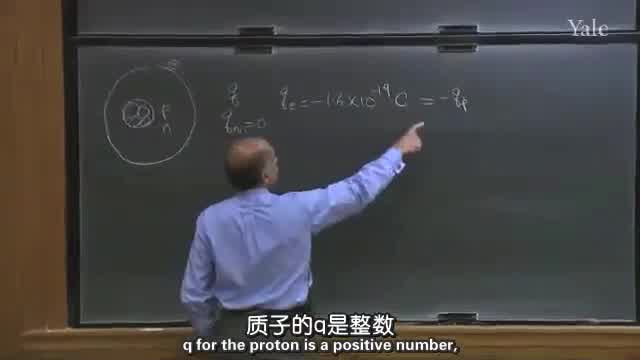 Yale
q qₑ = -1.6×10⁻¹⁹ C = -qₚ
P
n
qₙ = 0
质子的q是整数
q for the proton is a positive number,